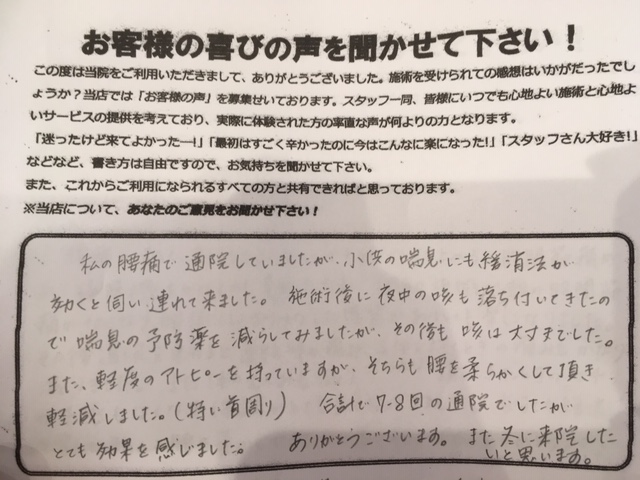 お客様の喜びの声を聞かせて下さい！
この度は当院をご利用いただきまして、ありがとうございました。施術を受けられての感想はいかがだったでし
ょうか？当店では「お客様の声」を募集せいております。スタッフ一同、皆様にいつでも心地よい施術と心地よ
いサービスの提供を考えており、実際に体験された方の率直な声が何よりの力となります。
「迷ったけど来てよかった―！」「最初はすごく辛かったのに今はこんなに楽になった！」「スタッフさん大好き！」
などなど、書き方は自由ですので、お気持ちを聞かせて下さい。
また、これからご利用になられるすべての方と共有できればと思っております。
※当店について、あなたのご意見をお聞かせ下さい！
私の腰痛で通院していましたが、小供の喘息にも緩消法が
効くと伺い連れて来ました。施術後に夜中の咳も落ち付いてきたの
で喘息の予防薬を減らしてみましたが、その後も咳は大丈夫でした。
また、軽度のアトピーを持っていますが、そちらも腰を柔らかくして頂き
軽減しました。(特に首周り) 合計で7-8回の通院でしたが
とても効果を感じました。 ありがとうございます。また冬に来院した
いと思います。